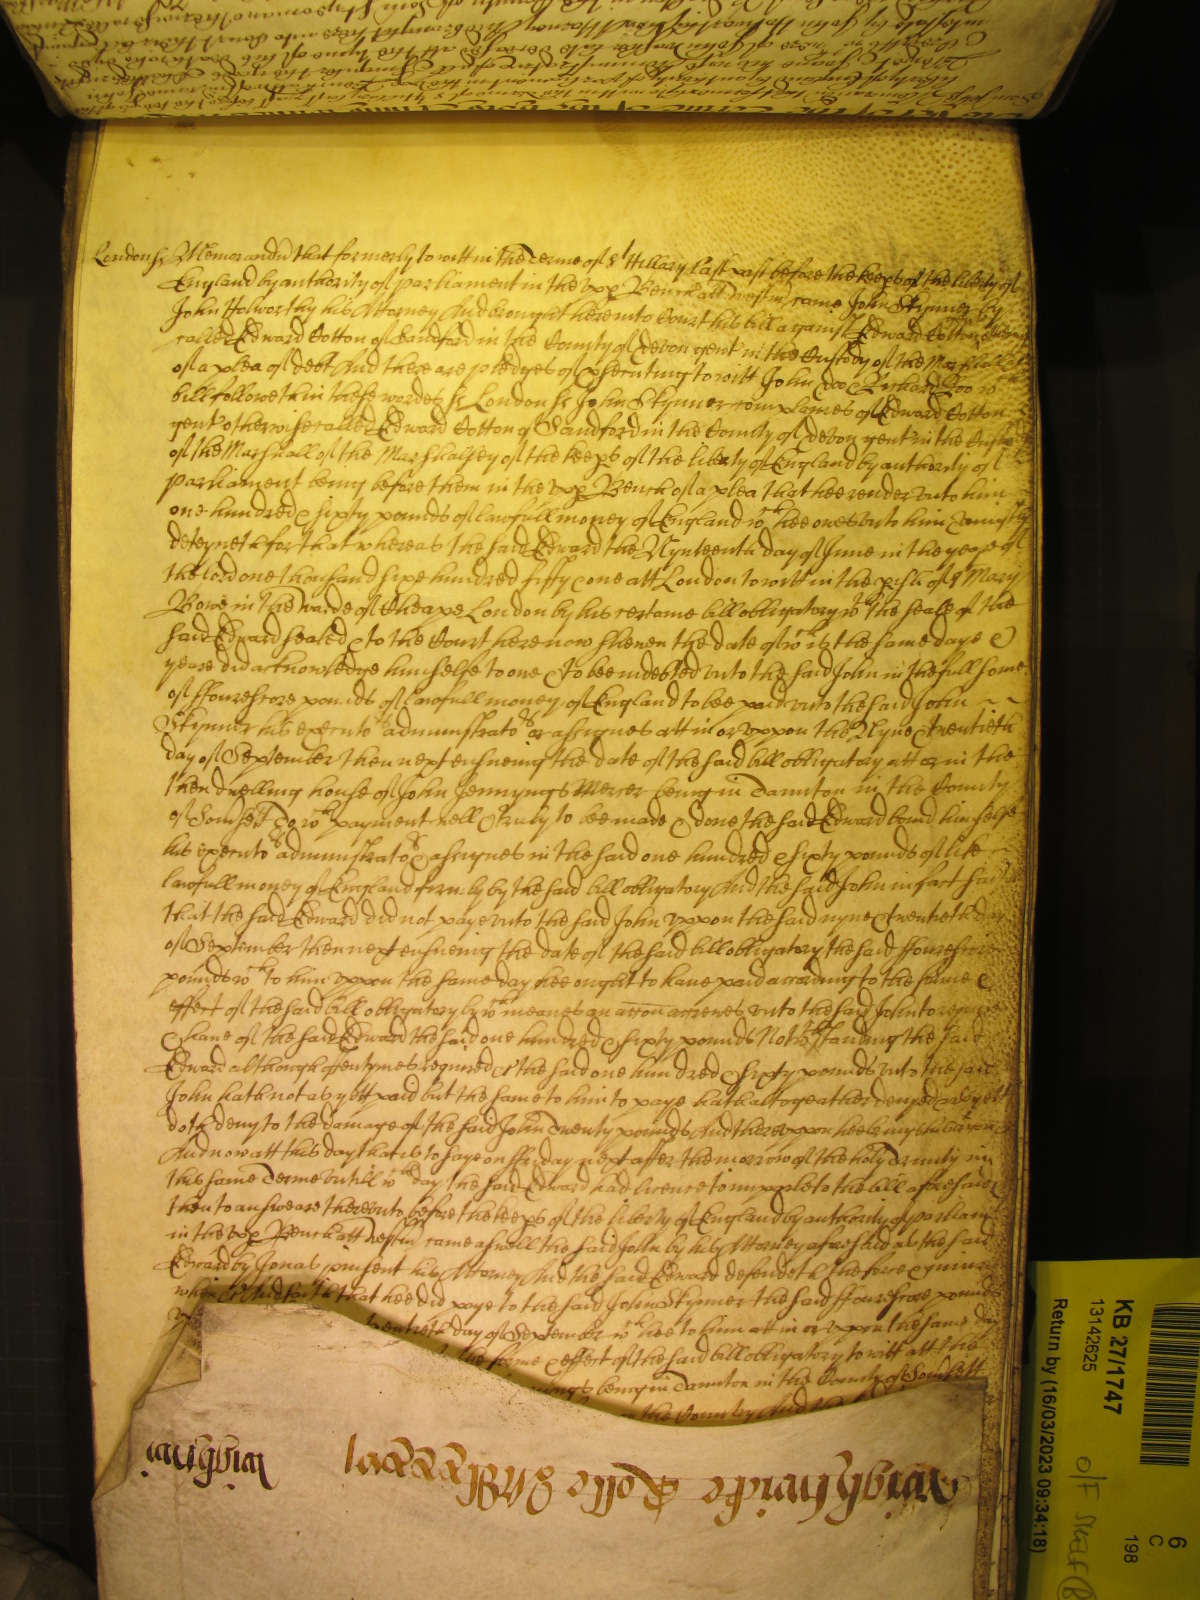 London ss Memorandu that formerly to witt in the Terme of St Hillary last past before the keeps of the liberty of
England by authority of parliament in the upp Bench att Westm came John Skynner by
John Holworthy his Attorney And brought here into Court his bill against Edward Cotton
called Edward Cotton of Sandford in the County of Devon gent in the Custody of the Marshall
of a plea of debt And there are pledges of psecuting to witt John Doo & Richard Roo wch
bill followeth in these wordes ss London ss John Skynner complaines of Edward Cotton
gent otherwise called Edward Cotton of Sandford in the County of Devon gent in the Custo
of the Marshall of the Marshalsey of the keeps of the liberty of England by authority of
parliament being before them in the upp Bench of a plea that hee render unto him
one hundred & sixty pounds of lawfull money of England wch hee owes unto him & uniustly
deteyneth for that whereas the said Edward the Nynteenth day of June in the yeare of
the lord one thousand sixe hundred fifty & one att London to witt in the pish of St Mary
Bowe in the warde of Cheape London by his certaine bill obligatory wth the seale of the
said Edward sealed & to the Court here now shewen the date of wch is the same daye &
yeare did acknowledge himselfe to owe & to bee indebted unto the said John in the full some
of ffourescore pounds of lawfull money of England to bee paid unto the said John
Skynner his executors administrators or assignes att in or uppon the Nyne & twentieth
day of September then next ensueing the date of the said bill obligatory att or in the
then dwelling house of John Jennyngs Mercer being in Taunton in the County
of Somsett To wch payment well & truly to bee made & done the said Edward bound himselfe
his executors administrators & assignes in the said one hundred & sixty pounds of like
lawfull money of England firmely by the said bill obligatory And the said John in fact saith
that the said Edward did not paye unto the said John uppon the said nyne & twentieth day
of September then next ensueing the date of the said bill obligatory the said ffourescore
pounds wch to him uppon the same day hee ought to have paid according to the forme &
effect of the said bill obligatory by wch meanes an accon accrewes unto the said John to require
& have of the said Edward the said one hundred & sixty pounds Notwthstanding the said
Edward although oftentymes required & the said one hundred & sixty pounds unto the said
John hath not as yett paid but the same to him to paye hath altogeather denyed & as yett
doth deny to the damage of the said John Twenty pounds And thereuppon hee brings his
And now att this day that is to saye on ffryday next after the morrow of the holy Trinity in
this same Terme untill wch day the said Edward had licence to imparle to the bill aforesaid &
then to answeare thereunto before the keeps of the liberty of England by authority of parliam
in the upp Bench att Westm came aswell the said John by his Attorney aforesaid as the said
Edward by Jonas his Attorney And the said Edward defendeth the force & iniury
when &c And saith that hee did paye to the said John Skynner the said ffourescore pounds
twentieth day of September wch hee to him att in or uppon the same day
the forme & effect of the said bill obligatory to witt att the
being in Taunton in the County of Somsett
the Country And the
Wightwicke Rolle
Wightwi
KB 27/1747
13142625
Return by (16/03/2023 09:34:18)
6
C
198